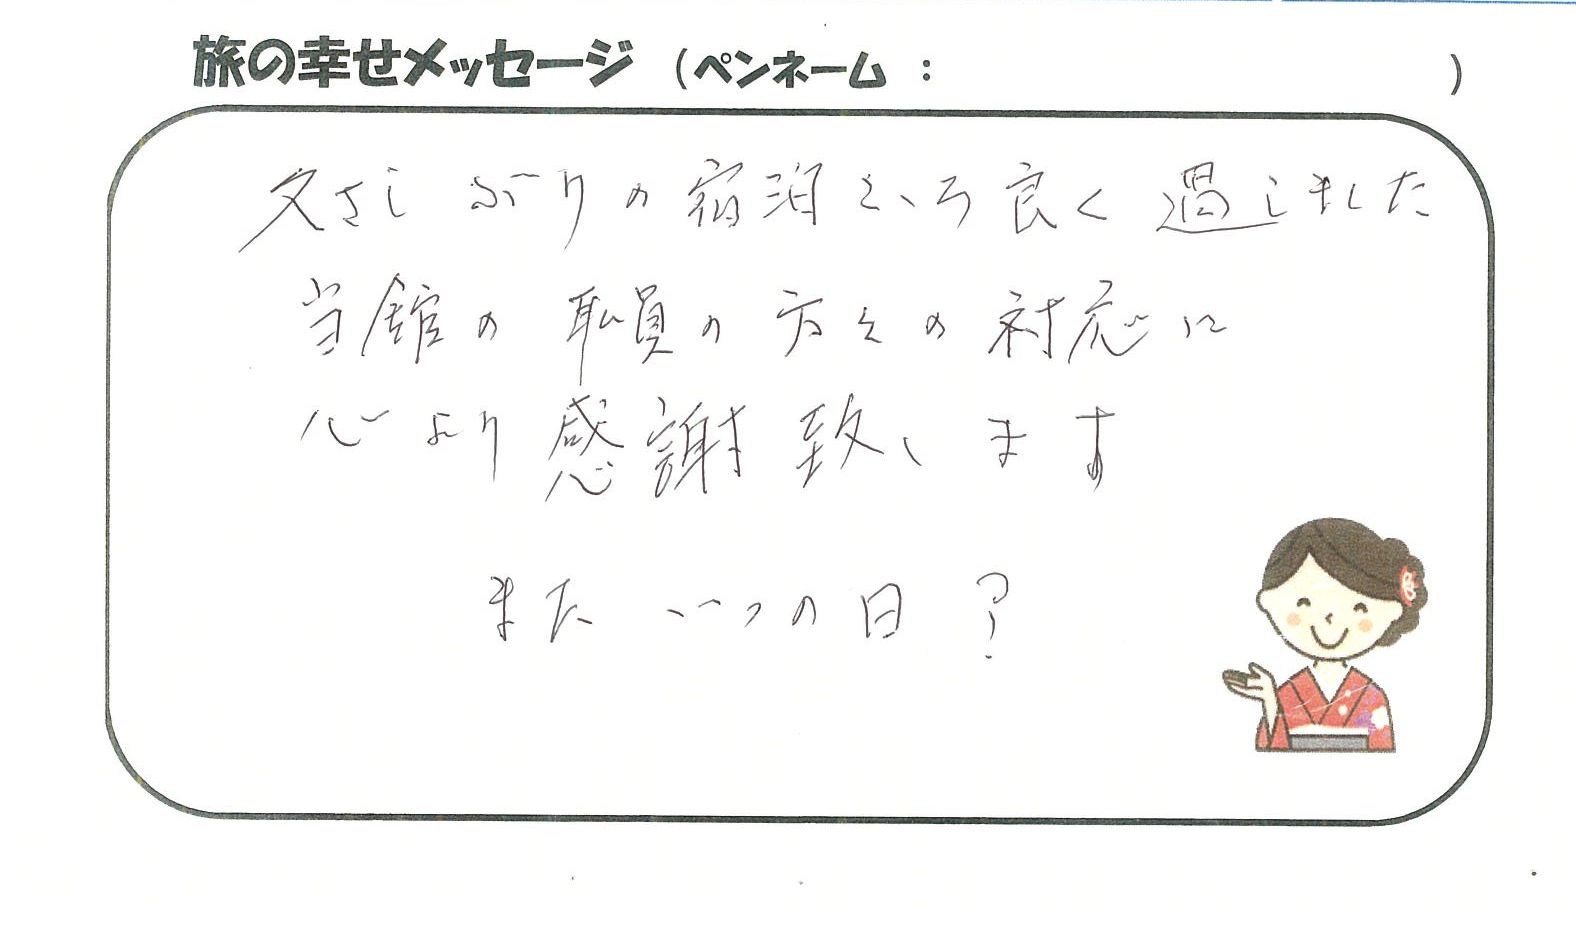 旅の幸せメッセージ (ペンネーム : )
久さしぶりの宿泊こゝろ良く過しました
当館の職員の方々の対応に
心より感謝致します
また いつの日?